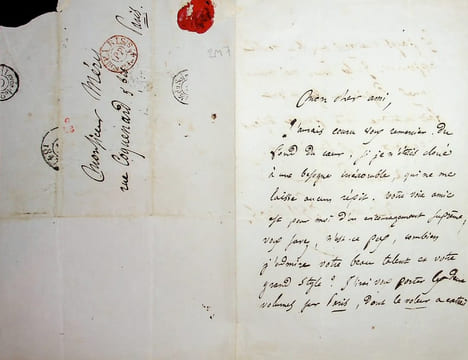 Monsieur Méry
rue Coquenard
Paris
Mon cher ami,
J'aurais couru vous remercier du
fond du cœur, si je n'étais cloué
à une besogne inexorable qui ne me
laisse aucun répit. Votre voix amie
est pour moi d'un encouragement suprême,
vous savez, n'est-ce pas, combien
j'admire votre beau talent et votre
grand style? J'irai vous porter les deux
volumes sur Paris, dont le voleur a